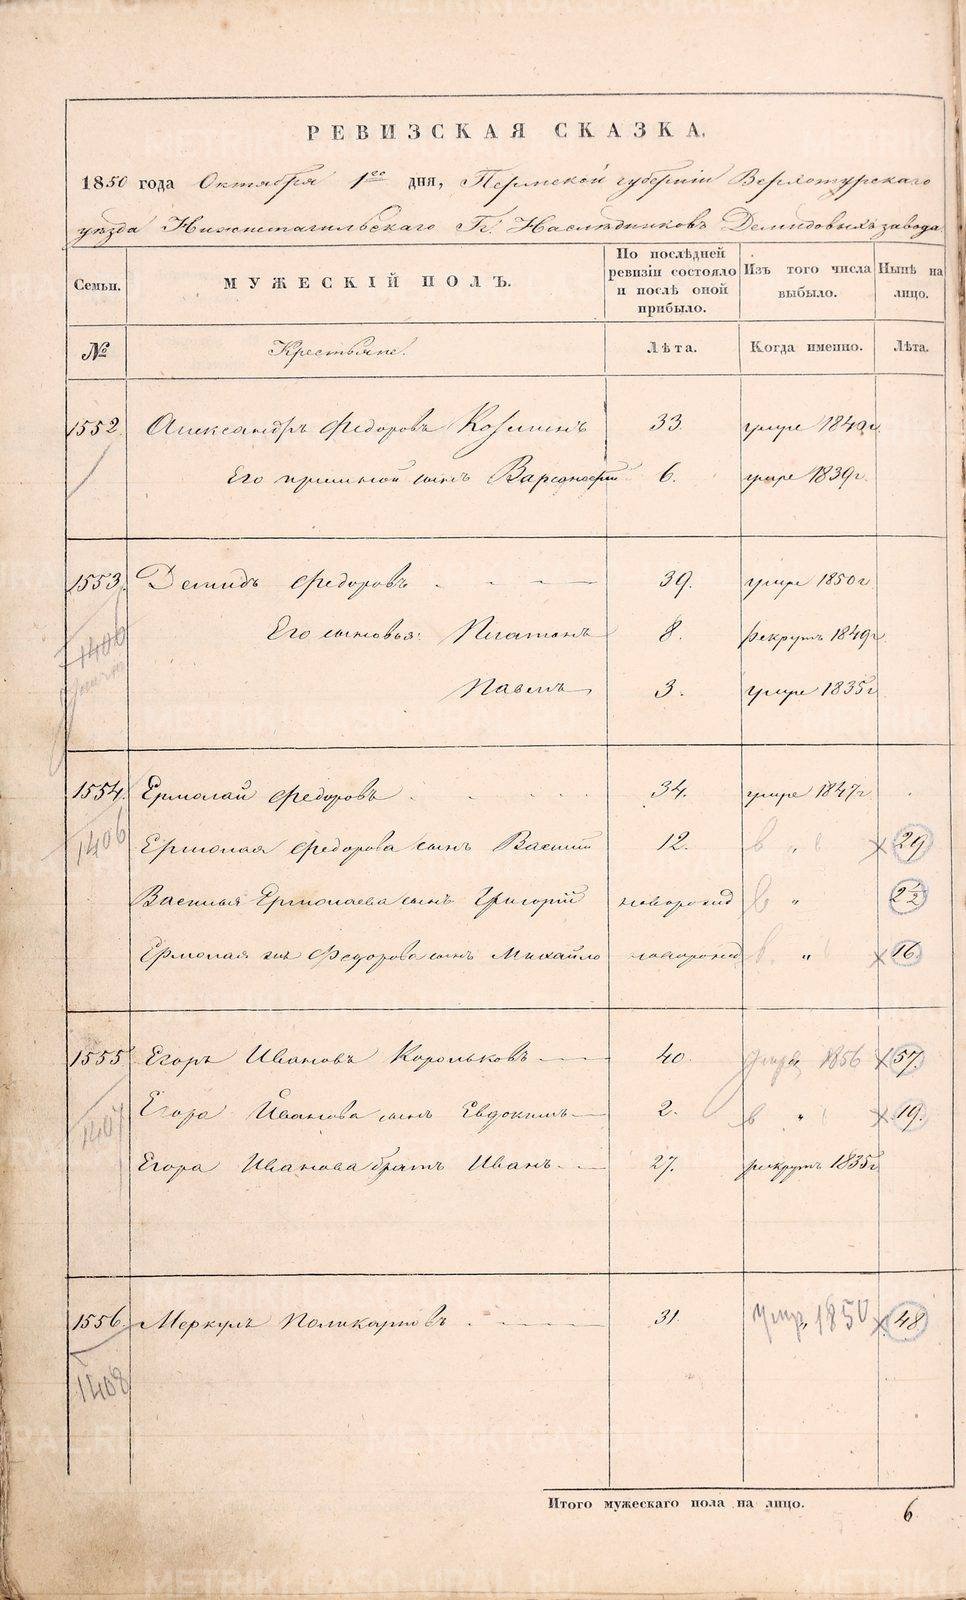 РЕВИЗСКАЯ СКАЗКА.
1850 года Октября 1го дня, Пермской губерніи Верхотурскаго
уѣзда Нижнетагильскаго Гг. Наслѣдниковъ Демидовыхъ завода
Семьи. МУЖЕСКІЙ ПОЛЪ. По послѣдней ревизіи состояло и послѣ оной прибыло. Изъ того числа выбыло. Нынѣ на лицо.
№ Крестьяне. Лѣта. Когда именно. Лѣта.
1552. Александръ Федоровъ Козминъ 33. умре 1840г.
Его приимной сынъ Варфоломей 6. умре 1839г.
1553. Демидъ Федоровъ 39. умре 1850г
1406 Его сыновья: Платонъ 8. рекрутъ 1849г
Павелъ 3. умре 1835г
1554. Ермолай Федоровъ 34. умре 1847г
1406 Ермолая Федорова сынъ Василій 12. в " 29
Василья Ермолаева сынъ Григорій новорожд в " 2½
Ермолая же Федорова сынъ Михайло новорожд в. " 16.
1555. Егоръ Ивановъ Корольковъ 40. 1856 57.
1407 Егора Иванова сынъ Евдокимъ 2. в " 19.
Егора Иванова братъ Иванъ 27. рекрутъ 1835г
1556. Меркулъ Поликарповъ 31. Умръ 1850 48
1408
Итого мужескаго пола на лицо. 6
METRIKI.GASO-URAL.RU